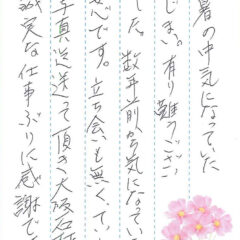 暑の中気になっていた
じまい。有り難うござい
した。数年前から気になってい
心です。立ち会いも無くてい
写真迄送って頂き大阪石材
誠実な仕事ぶりに感謝で